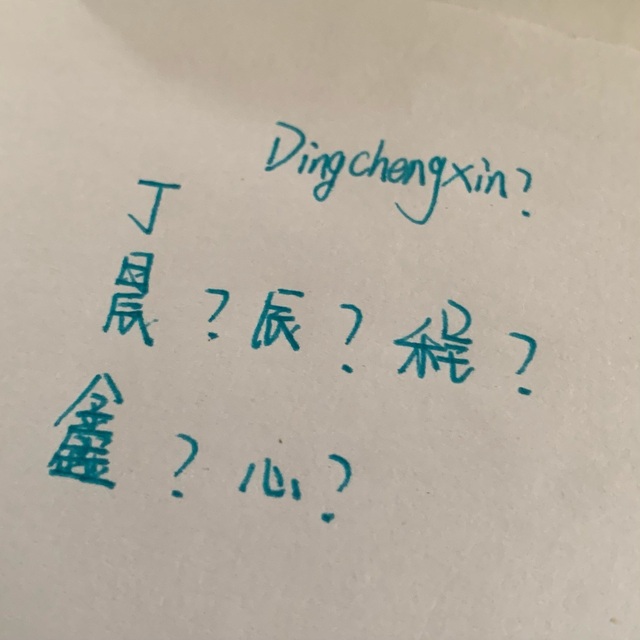 Dingchengxin?
丁
晨？辰？程？
鑫？心？